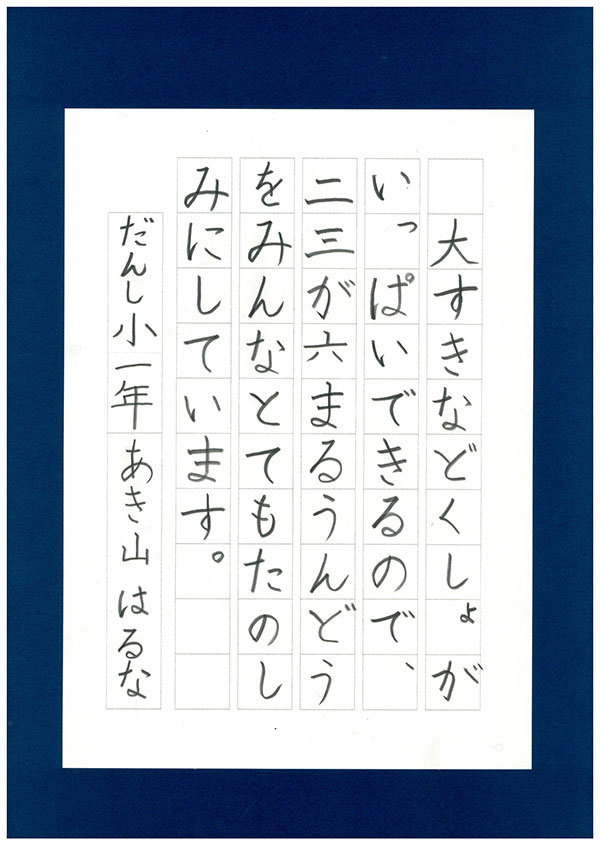 大すきなどくしょが
いっぱいできるので、
二三が六まるうんどう
をみんなとてもたのし
みにしています。
だんし小一年 あき山 はるな